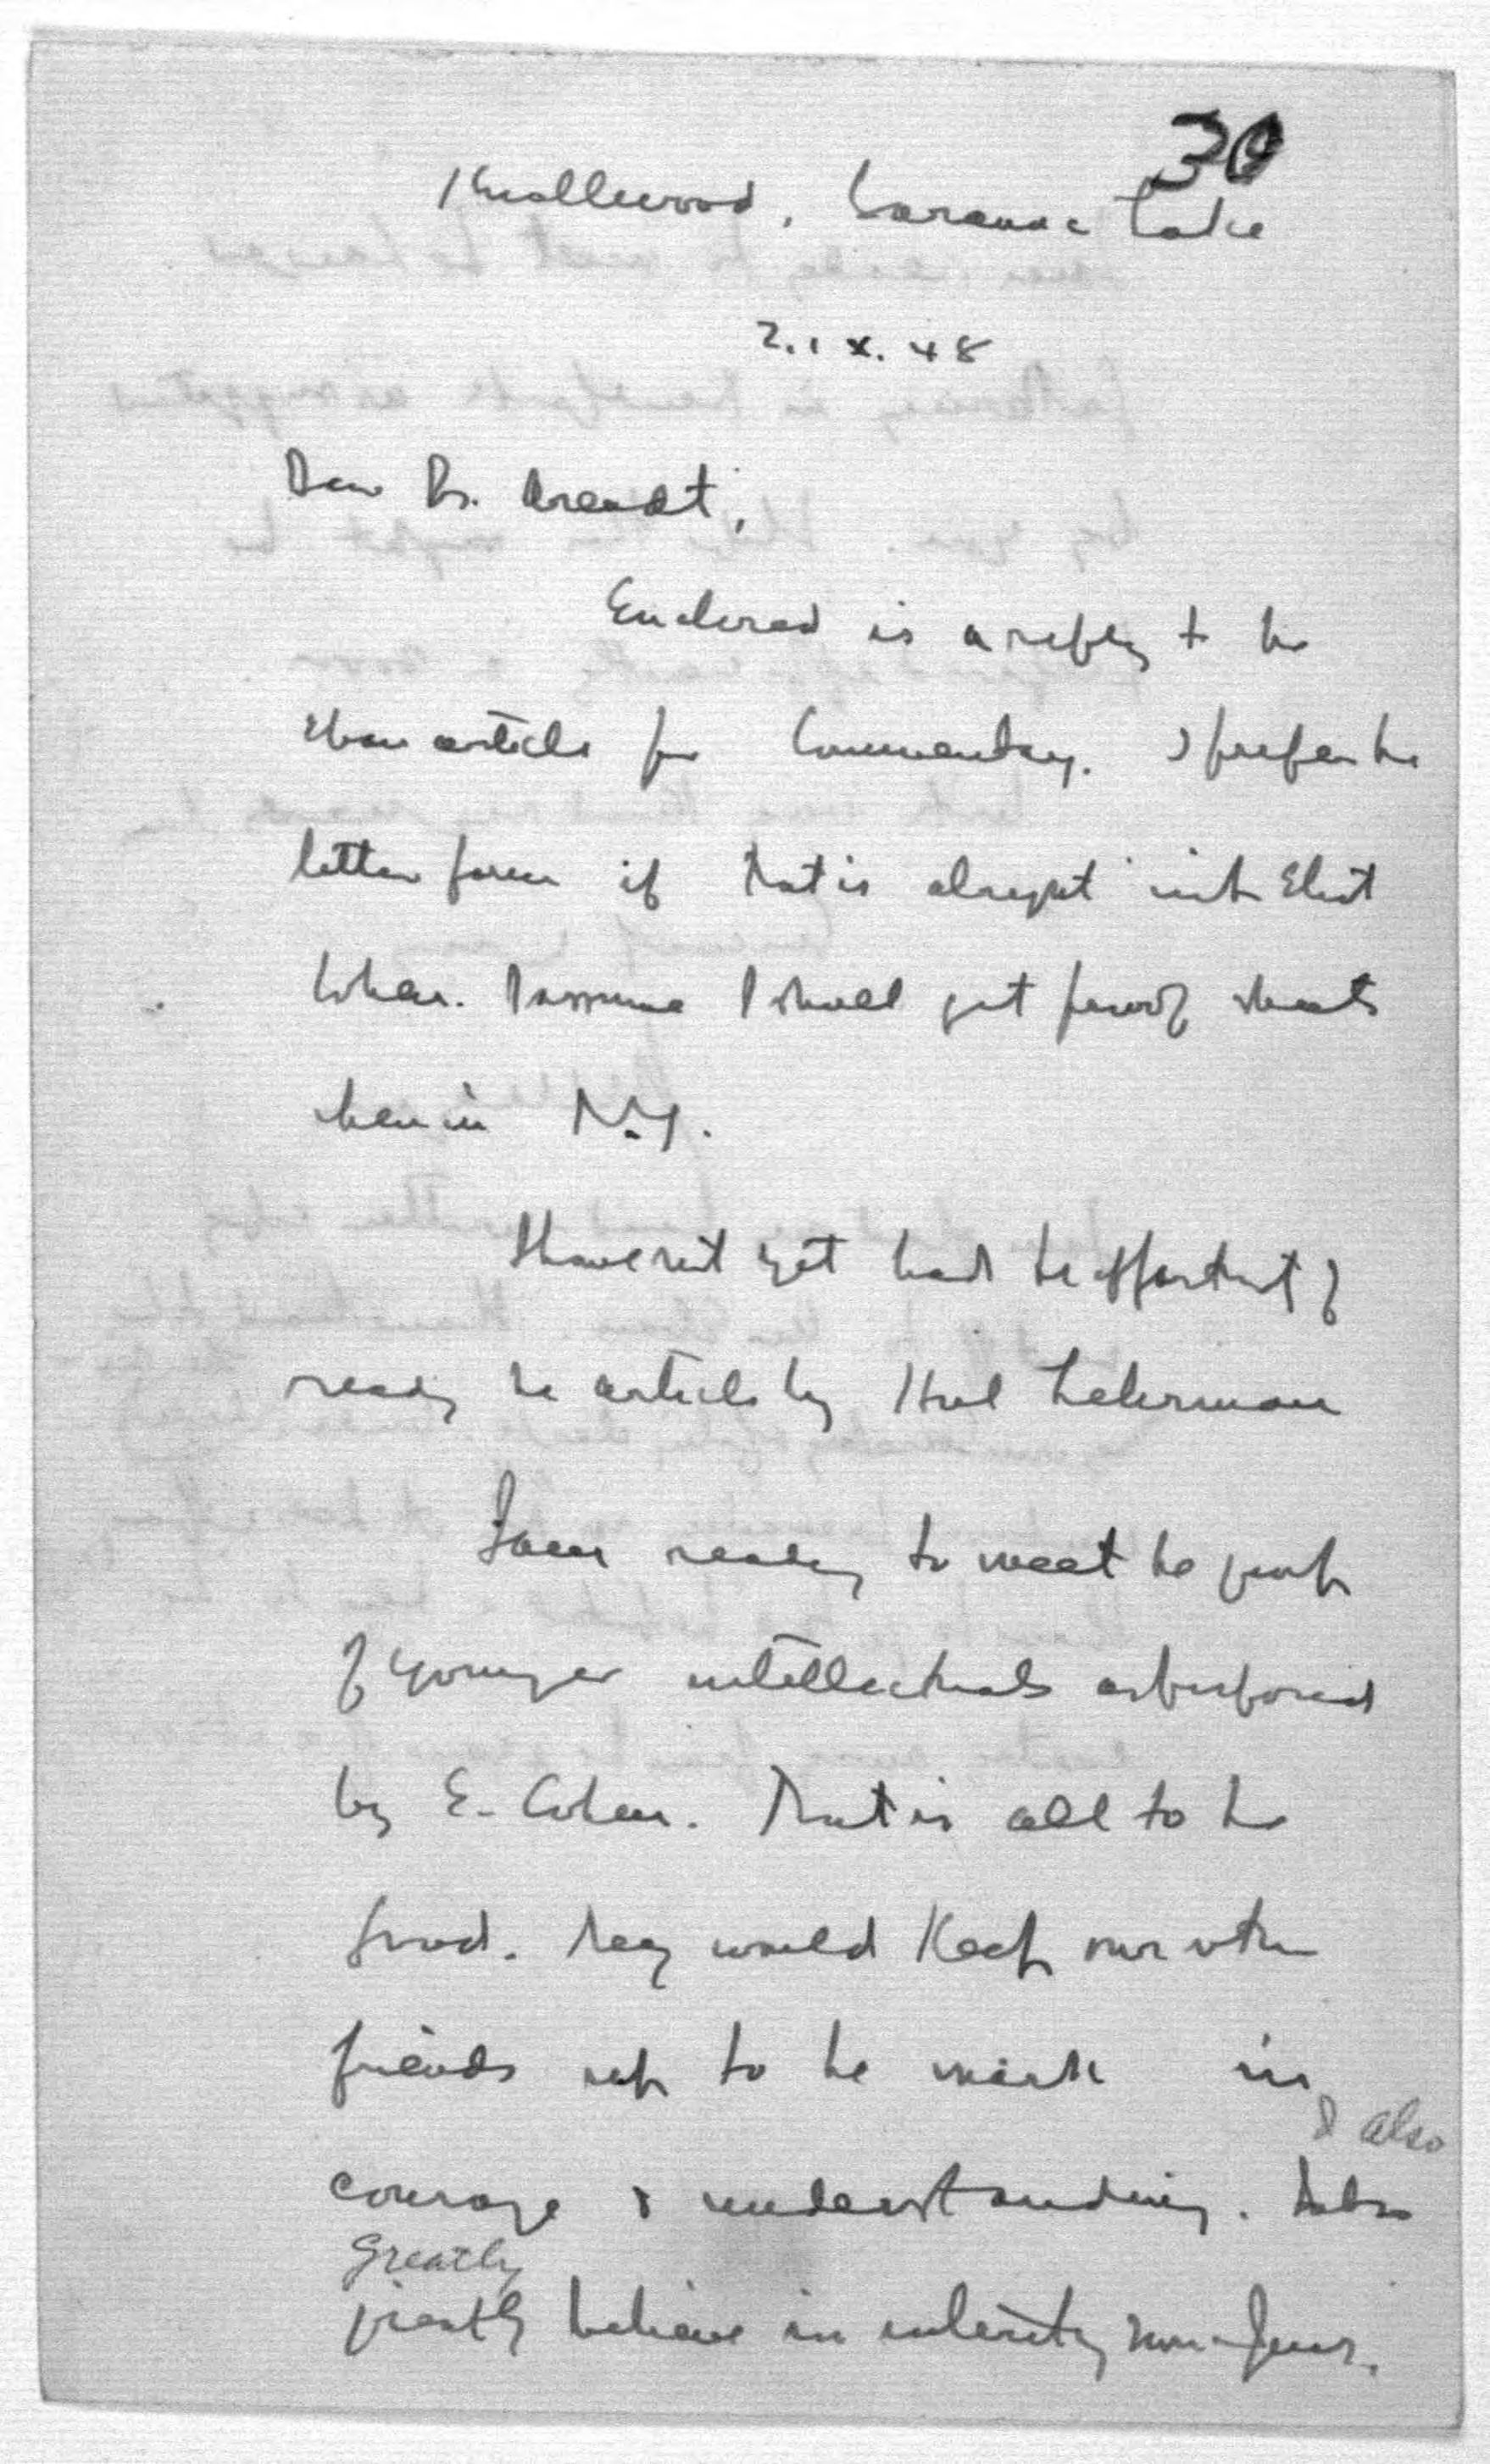 30
Knollwood, Saranac Lake
2. IX. 48
Dear Dr. Arendt,
Enclosed is a reply to the
Eban article for Commentary. I prefer the
letter form if that is alright with Eliot
Cohen. I assume I shall get proof sheets
when in N.Y.
I haven't yet had the opportunity of
reading the article by Hal Lehrman
I am ready to meet the group
of younger intellectuals as proposed
by E. Cohen. That is all to the
good. They would keep our other
friends up to the mark in
I also
courage & understanding. I also
greatly
greatly believe in interesting non-Jews.